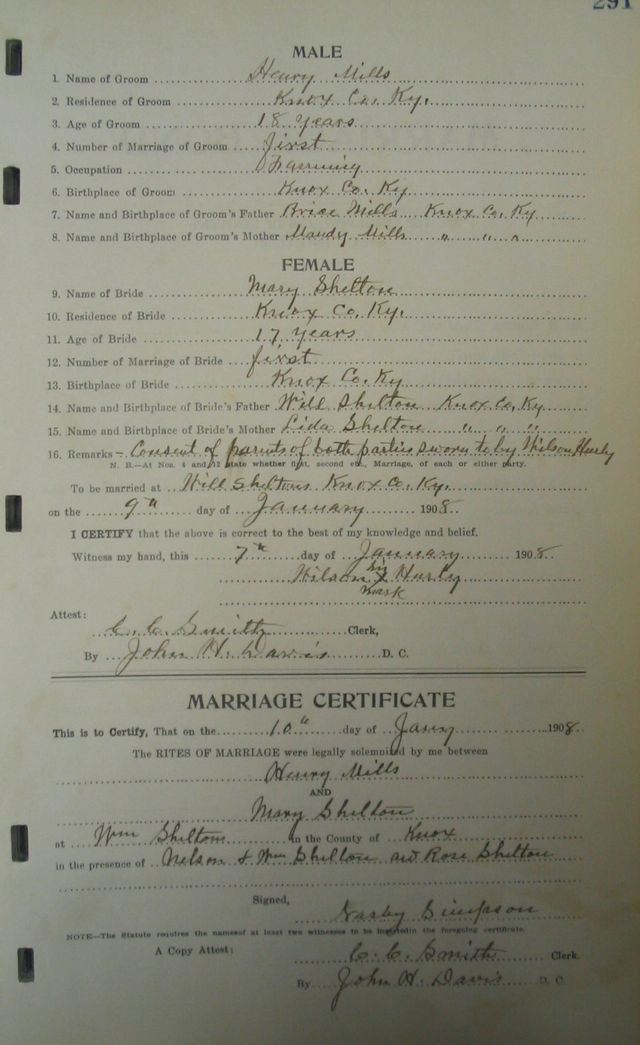 291
MALE
1. Name of Groom Henry Mills
2. Residence of Groom Knox Co. Ky.
3. Age of Groom 18 years
4. Number of Marriage of Groom first
5. Occupation Farming
6. Birthplace of Groom Knox Co. Ky
7. Name and Birthplace of Groom's Father Brice Mills Knox Co. Ky
8. Name and Birthplace of Groom's Mother Maudy Mills " " "
FEMALE
9. Name of Bride Mary Shelton
10. Residence of Bride Knox Co. Ky.
11. Age of Bride 17 years
12. Number of Marriage of Bride first
13. Birthplace of Bride Knox Co. Ky
14. Name and Birthplace of Bride's Father Will Shelton Knox Co. Ky
15. Name and Birthplace of Bride's Mother Lida Shelton " " "
16. Remarks - Consent of parents of both parties sworn to by Wilson Hurly
N. B.—At Nos. 4 and 12 state whether first, second etc., Marriage, of each or either party.
To be married at Will Sheltons Knox Co. Ky.
on the 9" day of January 1908
I CERTIFY that the above is correct to the best of my knowledge and belief.
Witness my hand, this 7" day of January 1908
Wilson his X Hurly
mark
Attest:
C. C. Smith Clerk,
By John H. Davis D. C.
MARRIAGE CERTIFICATE
This is to Certify, That on the 10" day of Jany 1908
The RITES OF MARRIAGE were legally solemnized by me between
Henry Mills
AND
Mary Shelton
at Wm Sheltons in the County of Knox
in the presence of Nelson & Wm Shelton and Rose Shelton
Signed, Simpson
NOTE—The Statute requires the names of at least two witnesses to be inserted in the foregoing certificate.
A Copy Attest: C. C. Smith Clerk.
By John H. Davis D. C.